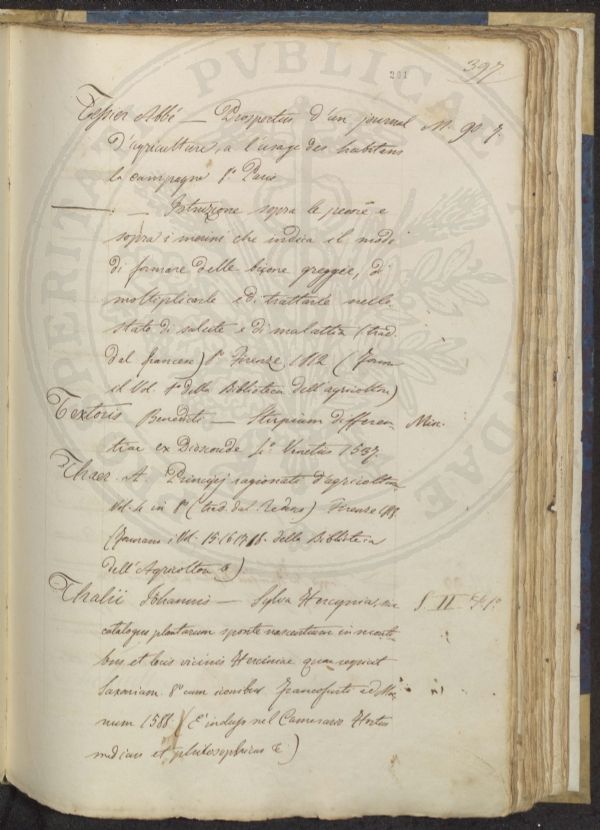 201
397
Tessier Abbé — Prospectus d'un journal M. 90. 7.
d'agriculture, a l'usage des habitans
la campagne 8° Paris
——— : — Istruzione sopra le pecore e
sopra i merini che indica il modo
di formare delle buone greggee, di
moltiplicarle e di trattarle nello
stato di salute e di malattia (trad.
dal francese) 8° Firenze 1812 (Form
il Vol. 1° della Biblioteca dell'agricoltore)
Textoris Benedicti — Stirpium differen Min.
tiae ex Dioscoride Venetiis 1537
Thaer A. Principj ragionati d'agricoltura
Vol. 4 in 8° (trad. dal Tedesco) Firenze
(Formano i Vol. 15. 16. 17. 18. della Biblioteca
dell'Agricoltore &)
Thalii Johannis — Sylva Hercynia, sive S. II
catalogus plantarum sponte nascentium in monti-
bus et locis vicinis Herciniae quae respicit
Saxoniam 8° cum iconibus Francofurti ad Moe-
num 1588 (E' indup nel Camerario Hortus
medicus et philosophicus &)
PUBLICAE